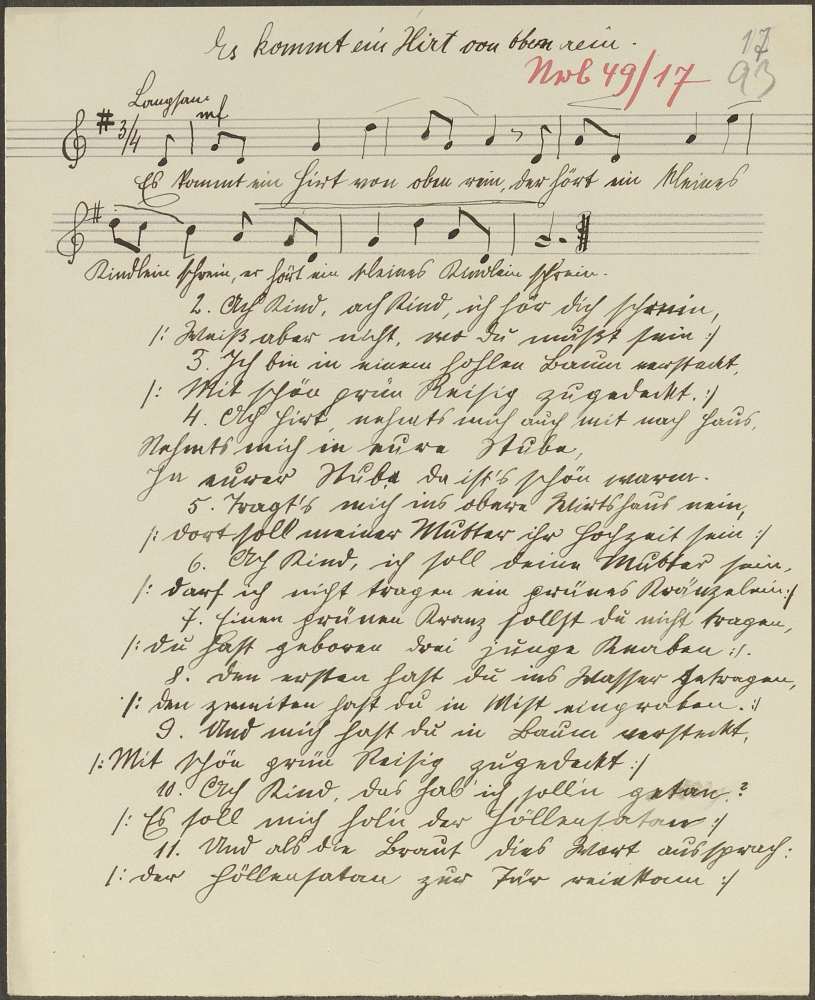 Es kommt ein Hirt von oben rein.
17
Nrb 49/17
93
Langsam
mf
3/4
Es kommt ein Hirt von oben rein, der hört ein kleines
Kindlein schrein, er hört ein kleines Kindlein schrein.
2. Ach Kind, ach Kind, ich hör dich schrein,
/: Weiß aber nicht, wo du mußt sein :/
3. Ich bin in einem hohlen Baum versteckt,
/: Mit schön grün Reisig zugedeckt. :/
4. Ach Hirt, nehmts mich auch mit nach Haus,
Nehmts mich in eure Stube,
In eurer Stube da ist's schön warm.
5. Tragt's mich ins obere Wirtshaus nein,
/: dort soll meiner Mutter ihr Hochzeit sein :/
6. Ach Kind, ich soll deine Mutter sein,
/: darf ich nicht tragen ein grünes Kränzelein :/
7. Einen grünen Kranz sollst du nicht tragen,
/: du hast geboren drei junge Knaben :/.
8. den ersten hast du ins Wasser getragen,
/: den zweiten hast du in Mist eingraben. :/
9. Und mich hast du in Baum versteckt,
/: Mit schön grün Reisig zugedeckt :/
10. Ach Kind, das hab' ich solln getan?
/: Es soll mich holn der Höllensatan :/
11. Und als die Braut dies Wort aussprach:
/: der Höllensatan zur Tür reinkam :/